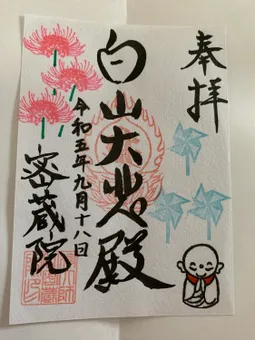 奉拝
白山大殿
令和五年九月十八日
密蔵院